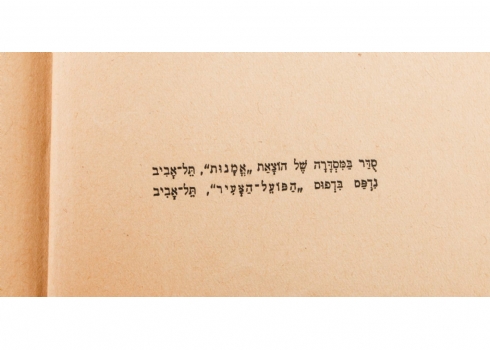 סֻדַּר בַּמִּסְדָּרָה שֶׁל הוֹצָאַת „אֱמָנוּת“, תֵּל־אָבִיב
נִדְפַּס בִּדְפוּס „הַפּוֹעֵל־הַצָּעִיר“, תֵּל־אָבִיב